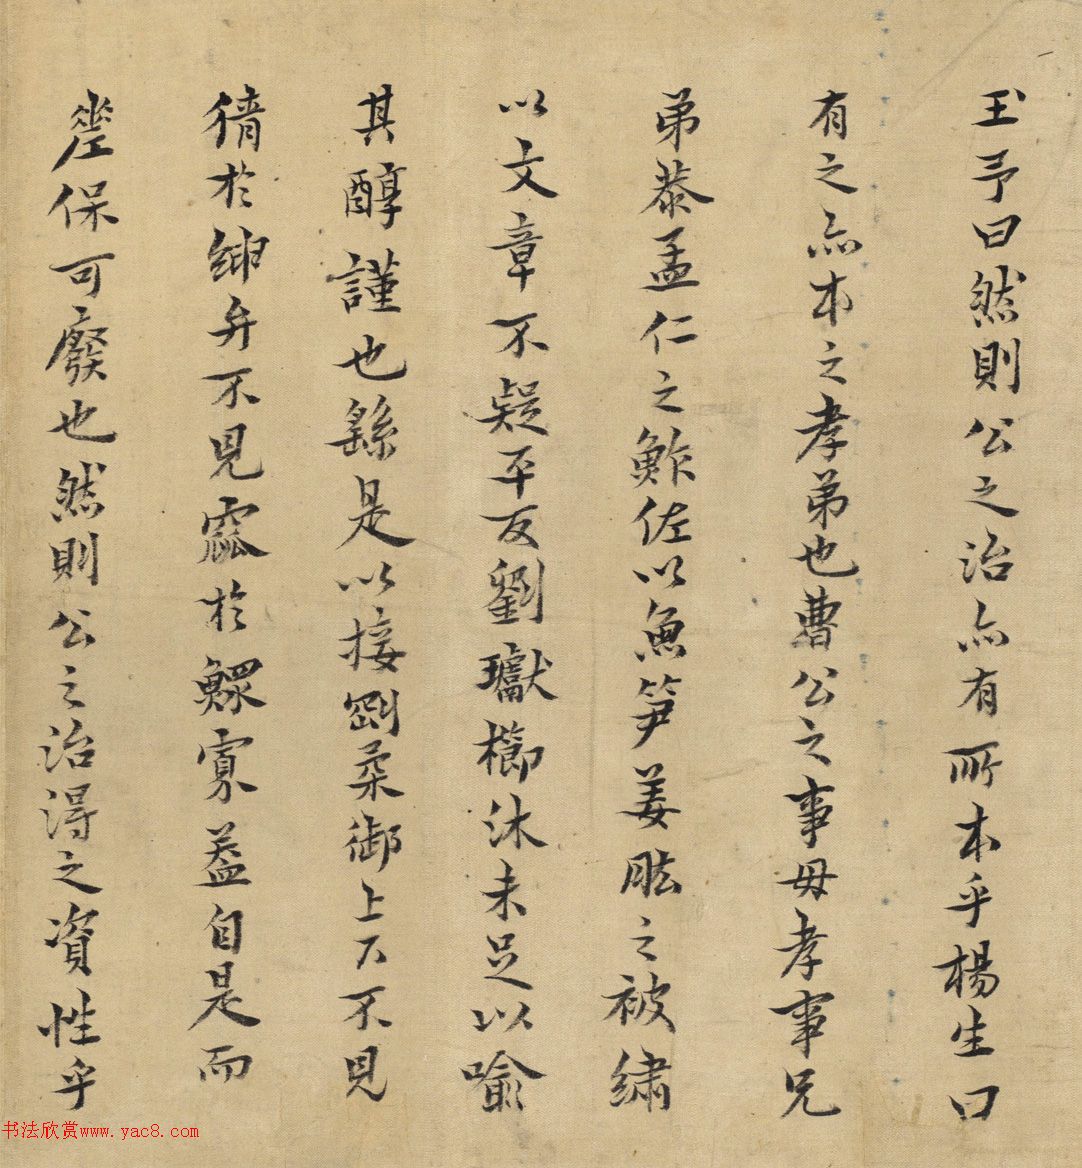 玉予曰然則公之治亦有所本乎楊生曰
有之亦本之孝弟也曹公之事母孝事兄
弟恭孟仁之鮓佐以魚笋姜肱之被繡
以文章不疑平反劉瓛櫛沐未足以喻
其醇謹也繇是以接剛柔御上下不見
猜於紳弁不見窳於鰥寡葢自是而
保可廢也然則公之治得之資性乎
书法欣赏www.yac8.com